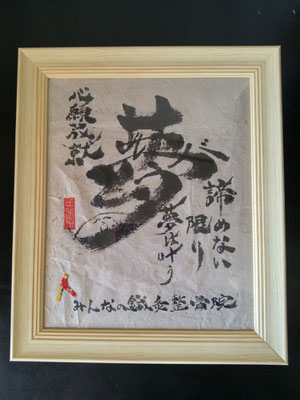 諦めない
限り
夢は叶う
夢
心願成就
みんなの鍼灸整骨院